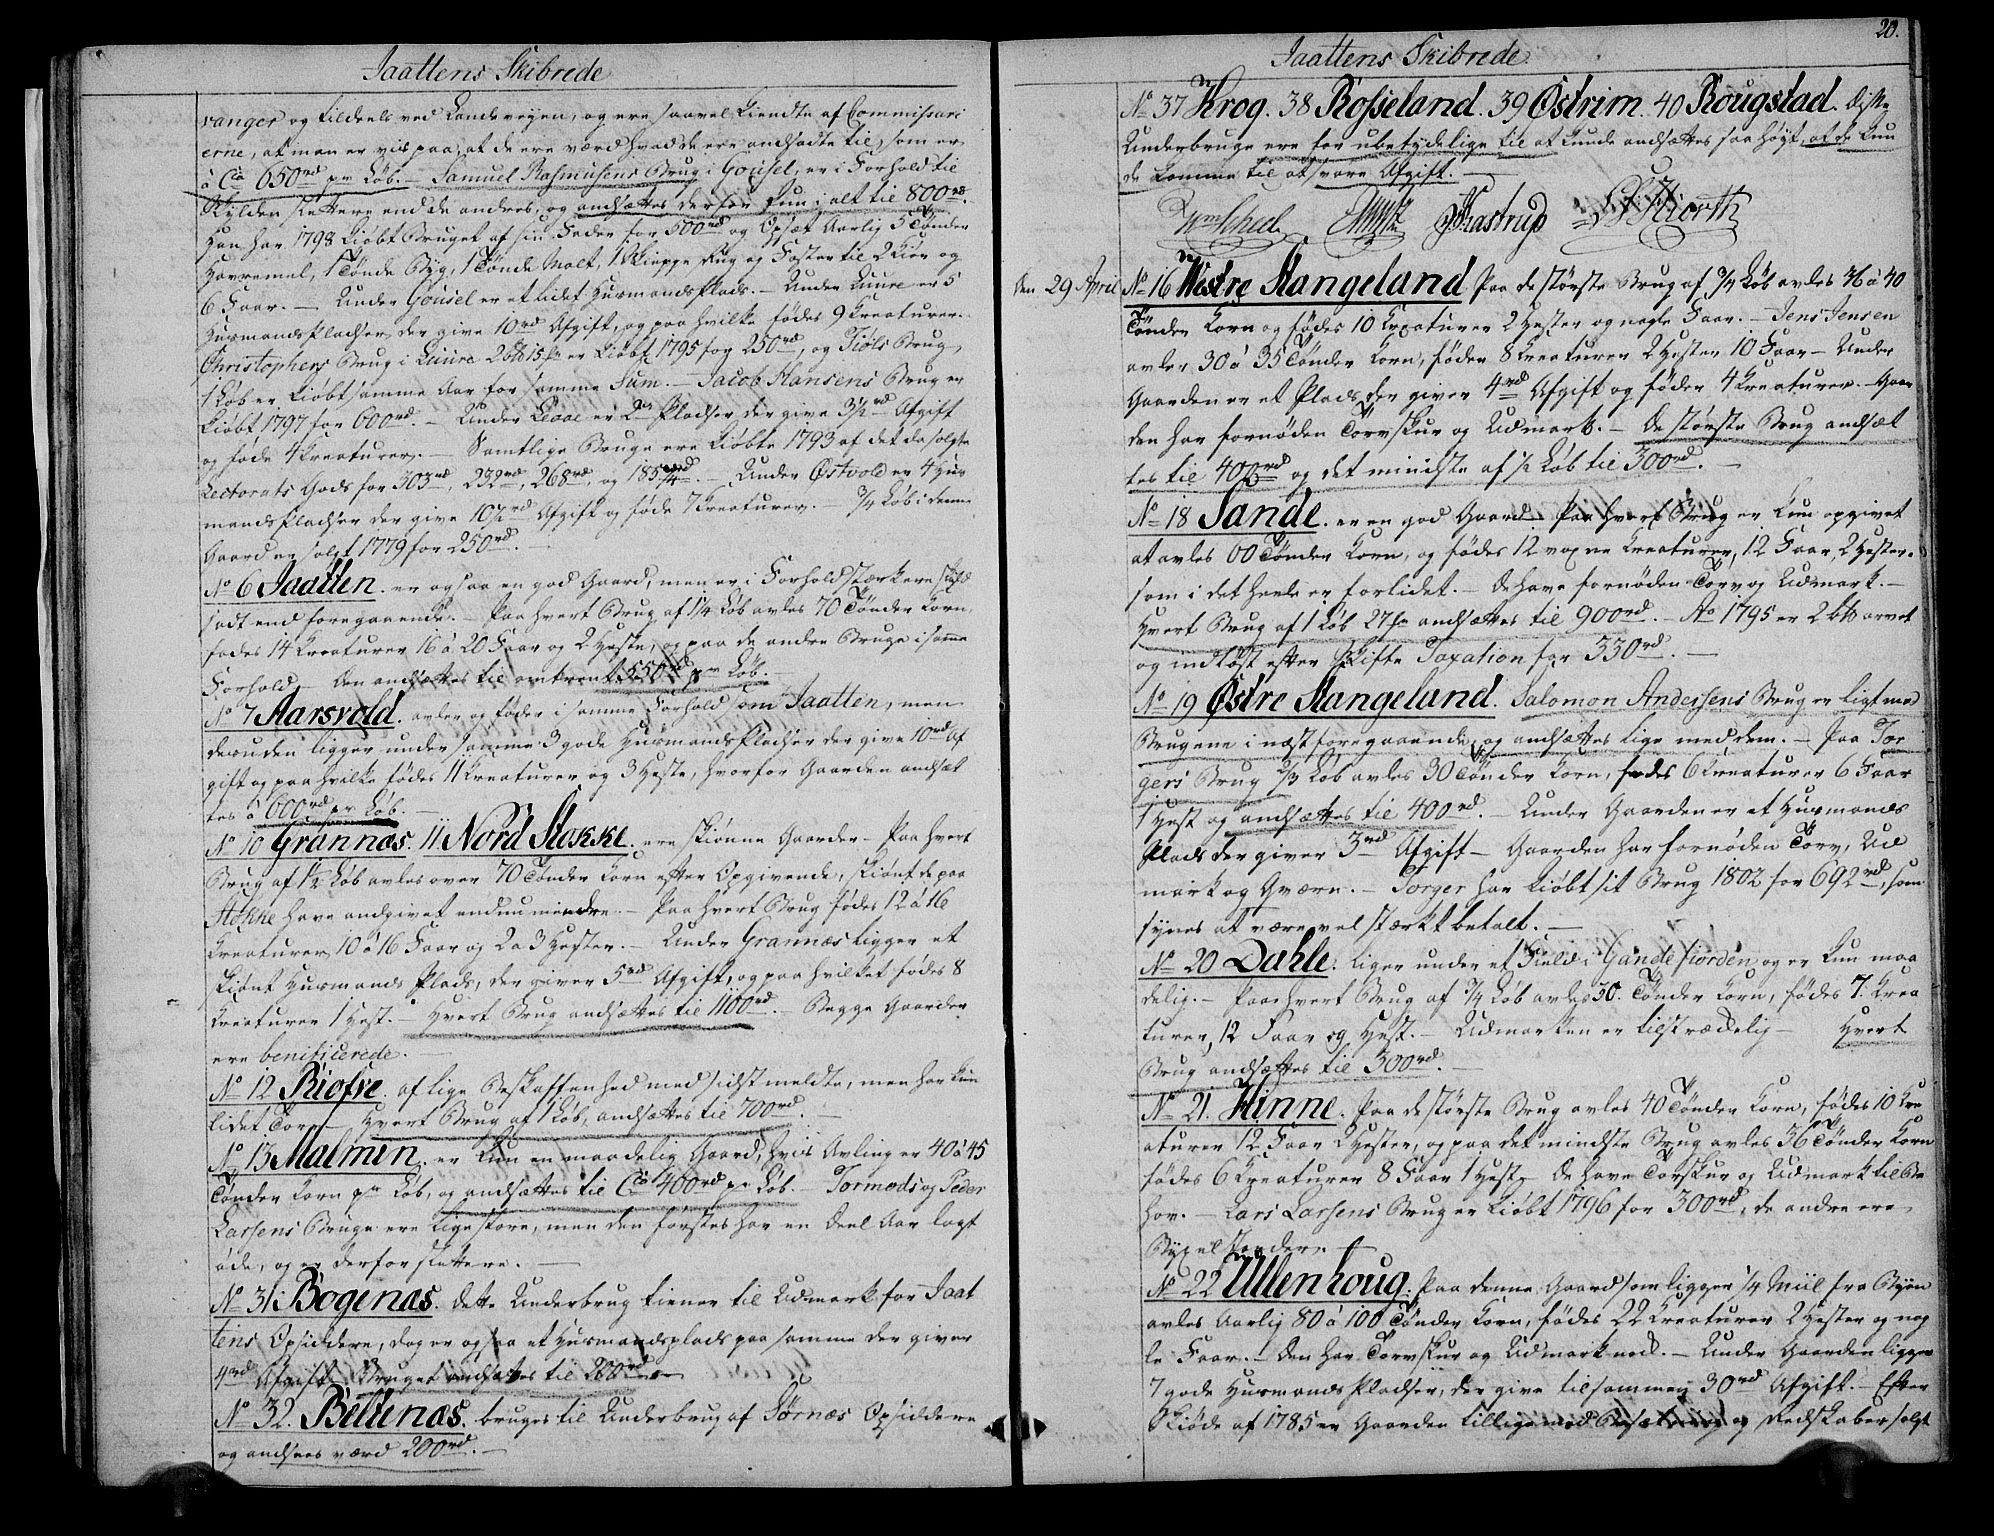 Jaattens Skibrede
vanger og tildeels ved Landeveyen, og ere saavel kiendte af Commissari
erne, at man er vis paa, at de ere værd hvad de ere andsadte til, som er
à Ca 650rd pr Løb. – Samuel Rasmusens Brug i Gousel, er i Forhold til
Skylden slettere end de andres, og andsættes derfor kun i alt til 800rd.
Han har 1798 kiøbt Bruget af sin Fader for 500rd og Opsæt Aarlig 5 Tønder
Havremel, 1 Tønde Byg, 1 Tønde Malt, 1 Skieppe Rug og Foster til 2 Kiør og
6 Faar. – Under Gousel er et lidet Husmands Plads. – Under Luure er 5
Husmands Pladser der give 10rd Afgift, og paa hvilke fødes 9 Kreaturer.
Christophers Brug i Luure 2 15 er kiøbt 1795 for 250rd, og Tiøls Brug
1 Løb er kiøbt samme Aar for samme Sum. – Jacob Hansens Brug er
kiøbt 1797 for 600rd. – Under Leaae er 2de Pladser der give 3½rd Afgift
og føde 4 Kreaturer. – Samtlige Bruge ere kiøbte 1793 af det da solgte
Lectorats Gods for 303rd, 232rd, 268rd, og 185¼rd. – Under Østvold er 4 Hus
mands Pladser der give 10½rd Afgift og føde 7 Kreaturer. – ¾ Løb i denne
Gaard er solgt 1779 for 250rd. –
No 6 Jaatten. er ogsaa en god Gaard, men er i Forhold stærkere skyld
sadt end foregaaende. – Paa hvert Brug af 1¼ Løb avles 70 Tønder Korn,
fødes 14 Kreaturer 16 à 20 Faar og 2 Heste, og paa de andre Bruge i samme
Forhold – Den andsættes til omtrent 550rd pr Løb. –
No 7 Aarsvold. avler og føder i samme Forhold som Jaatten, men
desuden ligger under samme 3 gode Husmands Pladser der give 10rd Af
gift og paa hvilke fødes 11 Kreaturer og 3 Heste, hvorfor Gaarden andsæt
tes à 600rd pr Løb. –
No 10 Grannæs. 11 Nord Stokke. ere skiønne Gaarder – Paa hvert
Brug af 1½ Løb avles over 70 Tønder Korn efter Opgivende, skiønt de paa
Stokke have andgivet endnu mindre. – Paa hvert Brug fødes 12 à 16
Kreaturer, 10 à 16 Faar og 2 a 3 Hester. – Under Grannæs ligger et
skiønt Husmands Plads, der giver 5rd Afgift, og paa hvilket fødes 8
Kreaturer 1 Hest. – Hvert Brug andsættes til 1100rd. – Begge Gaarder
ere benificerede. –
No 12 Riofre. af lige Beskaffenhed med sidst meldte, men har kun
lidet Torv – Hvert Brug af 1 Løb, andsættes til 700rd. –
No 13 Malmin. er kun en maadelig Gaard, hvis Avling er 40 à 45
Tønder Korn pr Løb, og andsættes til Ca 400rd pr Løb. – Tormods og Peder
Larsens Bruge ere lige store, men den førstes har en deel Aar lagt
øde, og er derfor slettere. –
No 31 Bogenæs. dette Underbrug tiener til Udmark for Jaat
tens Opsiddere, dog er ogsaa et Husmandsplads paa samme der giver
4rd Afgift. Bruget andsættes til 200rd –
No 32. Beltenæs. bruges til Underbrug af Sørnæs Opsiddere
og andsees værd 200rd. –
20.
Jaattens Skibrede
No 37 Krog. 38 Rosseland. 39 Østrim. 40 Rougstad. disse
Underbruge ere for ubetydelige til at kunde andsættes saa høyt, at de kun
de komme til at svare Afgift. –
Scheel Kastrup Hiorth
Den 29 April No 16 Westre Stangeland Paa de største Brug af ¾ Løb avles 36 à 40
Tønder Korn og fødes 10 Kreaturer 2 Hester og nogle Faar. – Jens Jensen
avler 30 à 35 Tønder Korn, føder 8 Kreaturer 2 Hester 10 Faar – Under
Gaarden er et Plads der giver 4rd Afgift og føder 4 Kreaturer. – Gaar
den har fornøden Torvskur og Udmark. – De største Brug andsæt
tes til 400rd og det mindste af ½ Løb til 300rd. –
No 18 Sande. er en god Gaard – Paa hvert Brug er kun opgivet
at avles 60 Tønder Korn, og fødes 12 voxne Kreaturer, 12 Faar, 2 Hester.
som i det heele er forlidet. – De have fornøden Torv og Udmark. –
Hvert Brug af 1 Løb 27 andsættes til 900rd. – Ao 1795 er 2 arvet
og indløst efter Skifte Taxation for 330rd. –
No 19 Østre Stangeland. Salomon Andersens Brug er ligt med
Brugene i næstforegaaende, og andsættes lige med dem. – Paa Tor
gers Brug ⅔ Løb avles 30 Tønder Korn, fødes 6 Kreaturer 6 Faar
1 Hest og andsættes til 400rd. – Under Gaarden er et Husmands
Plads der giver 3rd Afgift – Gaarden har fornøden Torv, Ud
mark og Qværn. – Torger har kiøbt sit Brug 1802 for 692rd, som
synes at være vel stærkt betalt. –
No 20 Dahle. liger under et Field i Gandefiorden og er kun maa
delig. – Paa hvert Brug af ¾ Løb avles 30. Tønder Korn, fødes 7. Krea
turer, 12 Faar og Hest. – Udmarken er tilstrækkelig – Hvert
Brug andsættes til 300rd. –
No 21. Hinne. Paa de største Brug avles 40 Tønder Korn, fødes 10 Kre
aturer 12 Faar 2 Hester, og paa det mindste Brug avles 36 Tønder Korn
fødes 6 Kreaturer 8 Faar 1 Hest – De have Torvskur og Udmark til Be
hov. – Lars Larsens Brug er kiøbt 1796 for 300rd, de andre ere
Bygselsander. –
No 22 Ullenhoug. Paa denne Gaard som ligger ¼ Miil fra Byen
avles Aarlig 80 à 100 Tønder Korn, fødes 22 Kreaturer 2 Hester og nog
le Faar. – Den har Torvskur og Udmark nok. – Under Gaarden ligger
7 gode Husmands Pladser, der give tilsammen 30rd Afgift. – Efter
Skiøde af 1785 er Gaarden tilligemed Besætning og Redskaber solgt